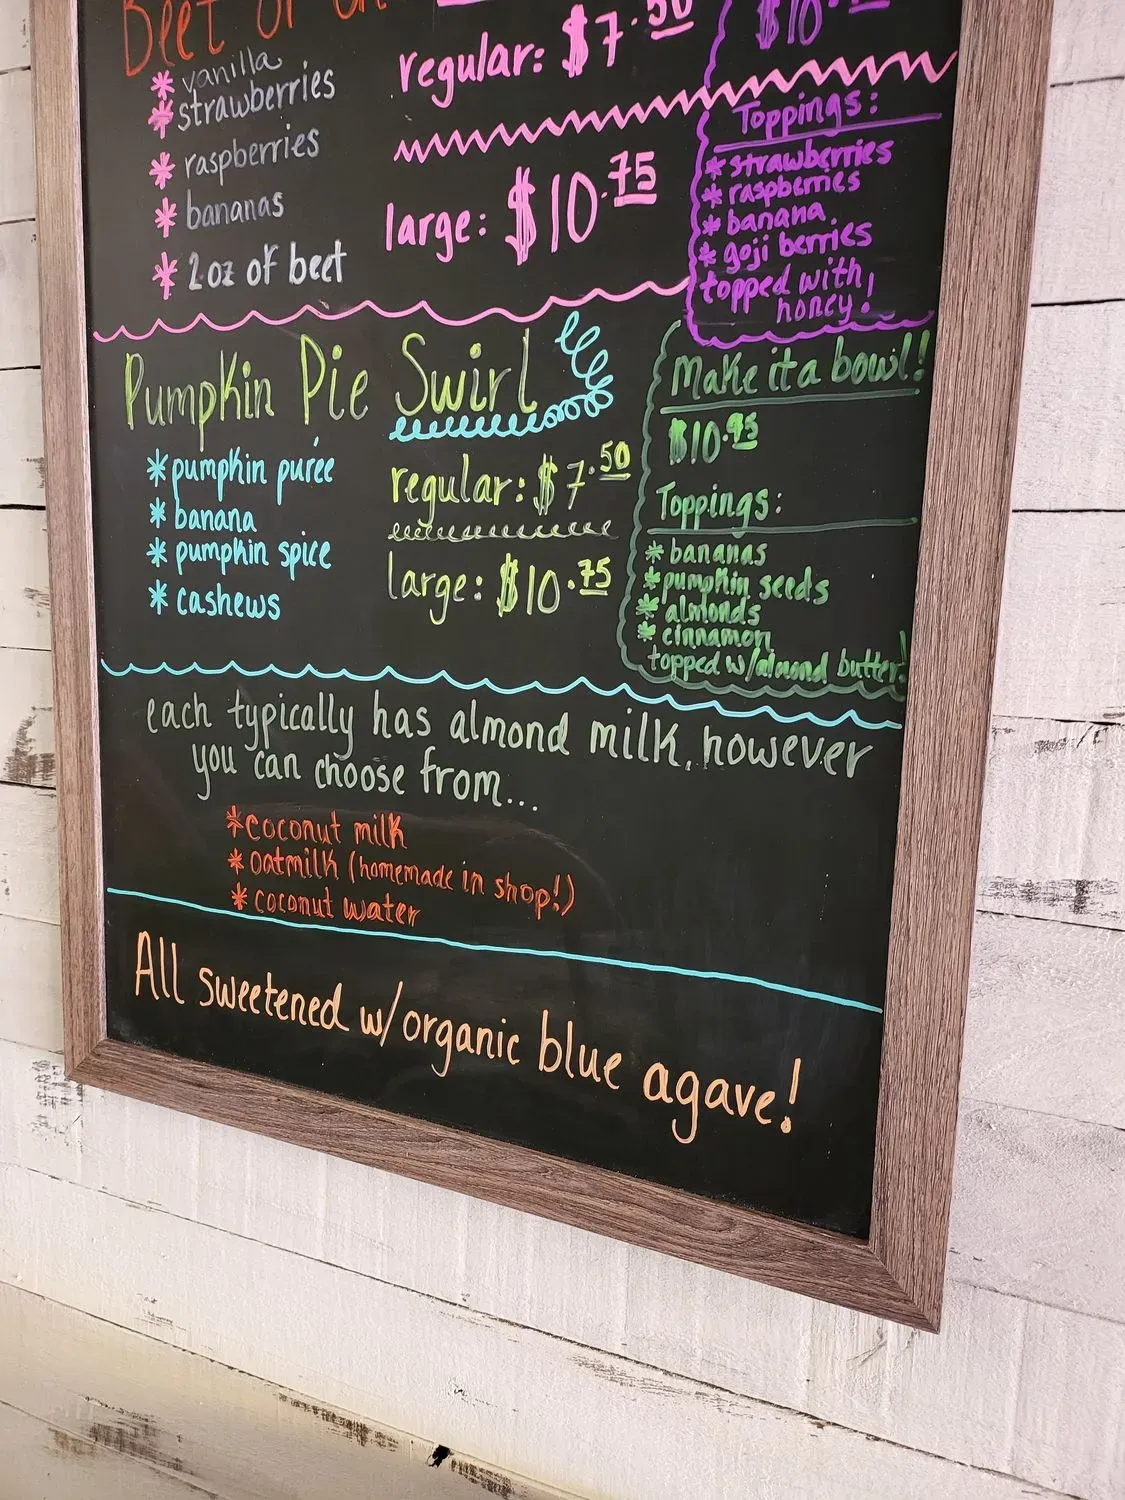 Beet
* vanilla
* strawberries
* raspberries
* bananas
* 2oz of beet
regular: $7.50
large: $10.75
$10.
Toppings:
* strawberries
* raspberries
* banana
* goji berries
topped with
honey!
Pumpkin Pie Swirl
* pumpkin purée
* banana
* pumpkin spice
* cashews
regular: $7.50
large: $10.75
Make it a bowl!
$10.95
Toppings:
* bananas
* pumpkin seeds
* almonds
* cinnamon
topped w/almond butter!
each typically has almond milk, however
you can choose from...
* coconut milk
* oatmilk (homemade in shop!)
* coconut water
All sweetened w/organic blue agave!